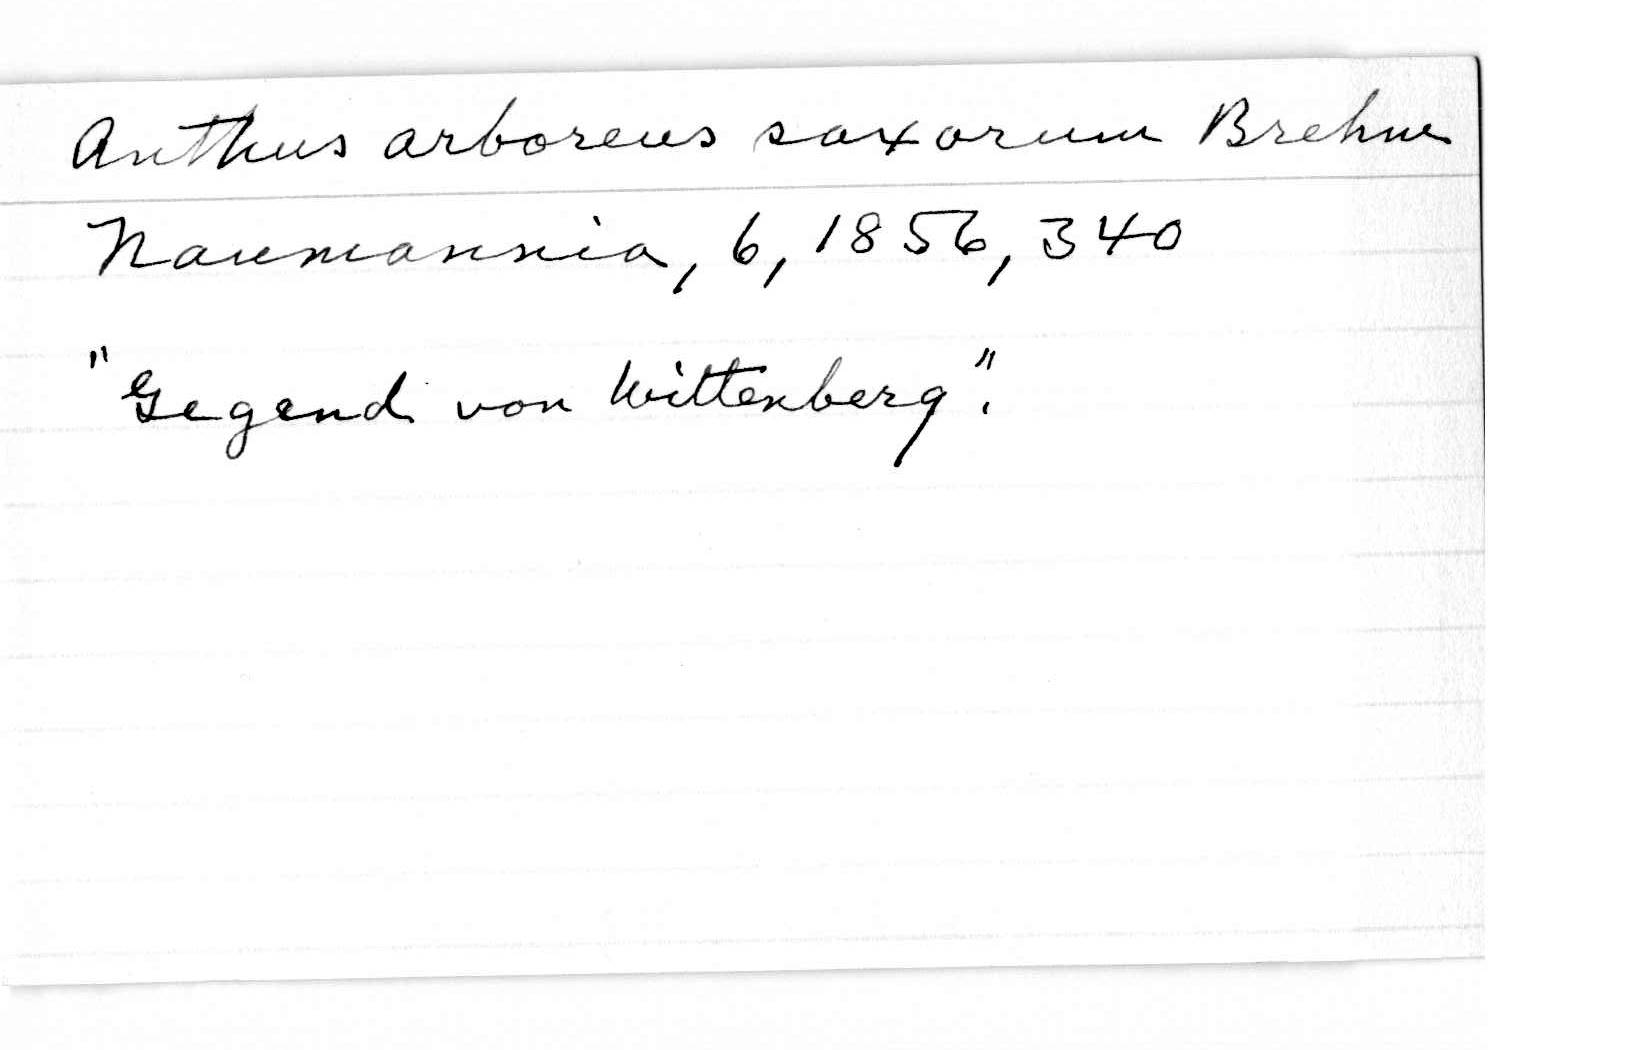 Anthus arboreus saxorum Brehm
Naumannia, 6, 1856, 340
"Gegend von Wittenberg".